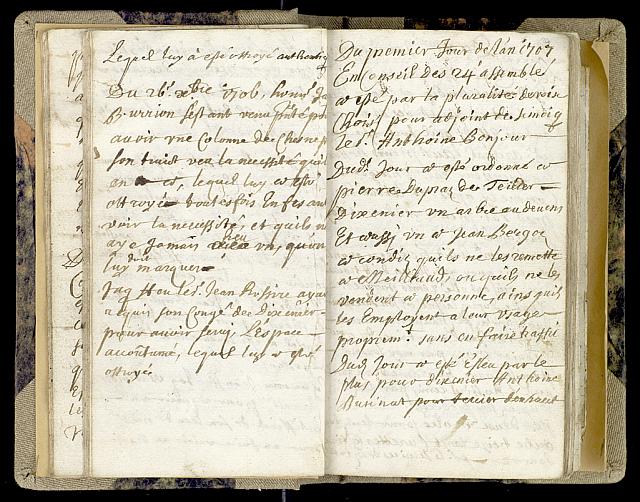 Lequel luy a esté ottroyé authentiq
Du 26e xbre 1706, honn. Ja
sestant venu
avoir une Colonne de Chesne p
son truict veu la necessité qu'il
en a, lequel luy a esté
ottroyé toutesfois en fesant
voir la necessité, et quils n
aye Jamais un, qu'on
luy doit marquer
Jaq Jean ayan
acquis son Congé de Dixenier
pour avoir servy Lespace
accoutumé, lequel luy a esté
ottroyé
Du premier Jour de L'an 1707
En Conseil des 24 assemblé
a esté par la pluralité de voix
Choisy pour adjoint de sindiq
Le Sr. Anthoine Bonjour
Dud. Jour a esté ordonné a
pierre Dupraz de
Dixenier un arbre au devens
Et aussy un a Jean Bergoz
a condi quils ne les remette
a ou quils ne les
vendent a personne, ains quils
les Employent a leur usage
propremt. sans en faire
Dud. Jour a esté Esleu par le
plus pour dixenier Anthoine
pour